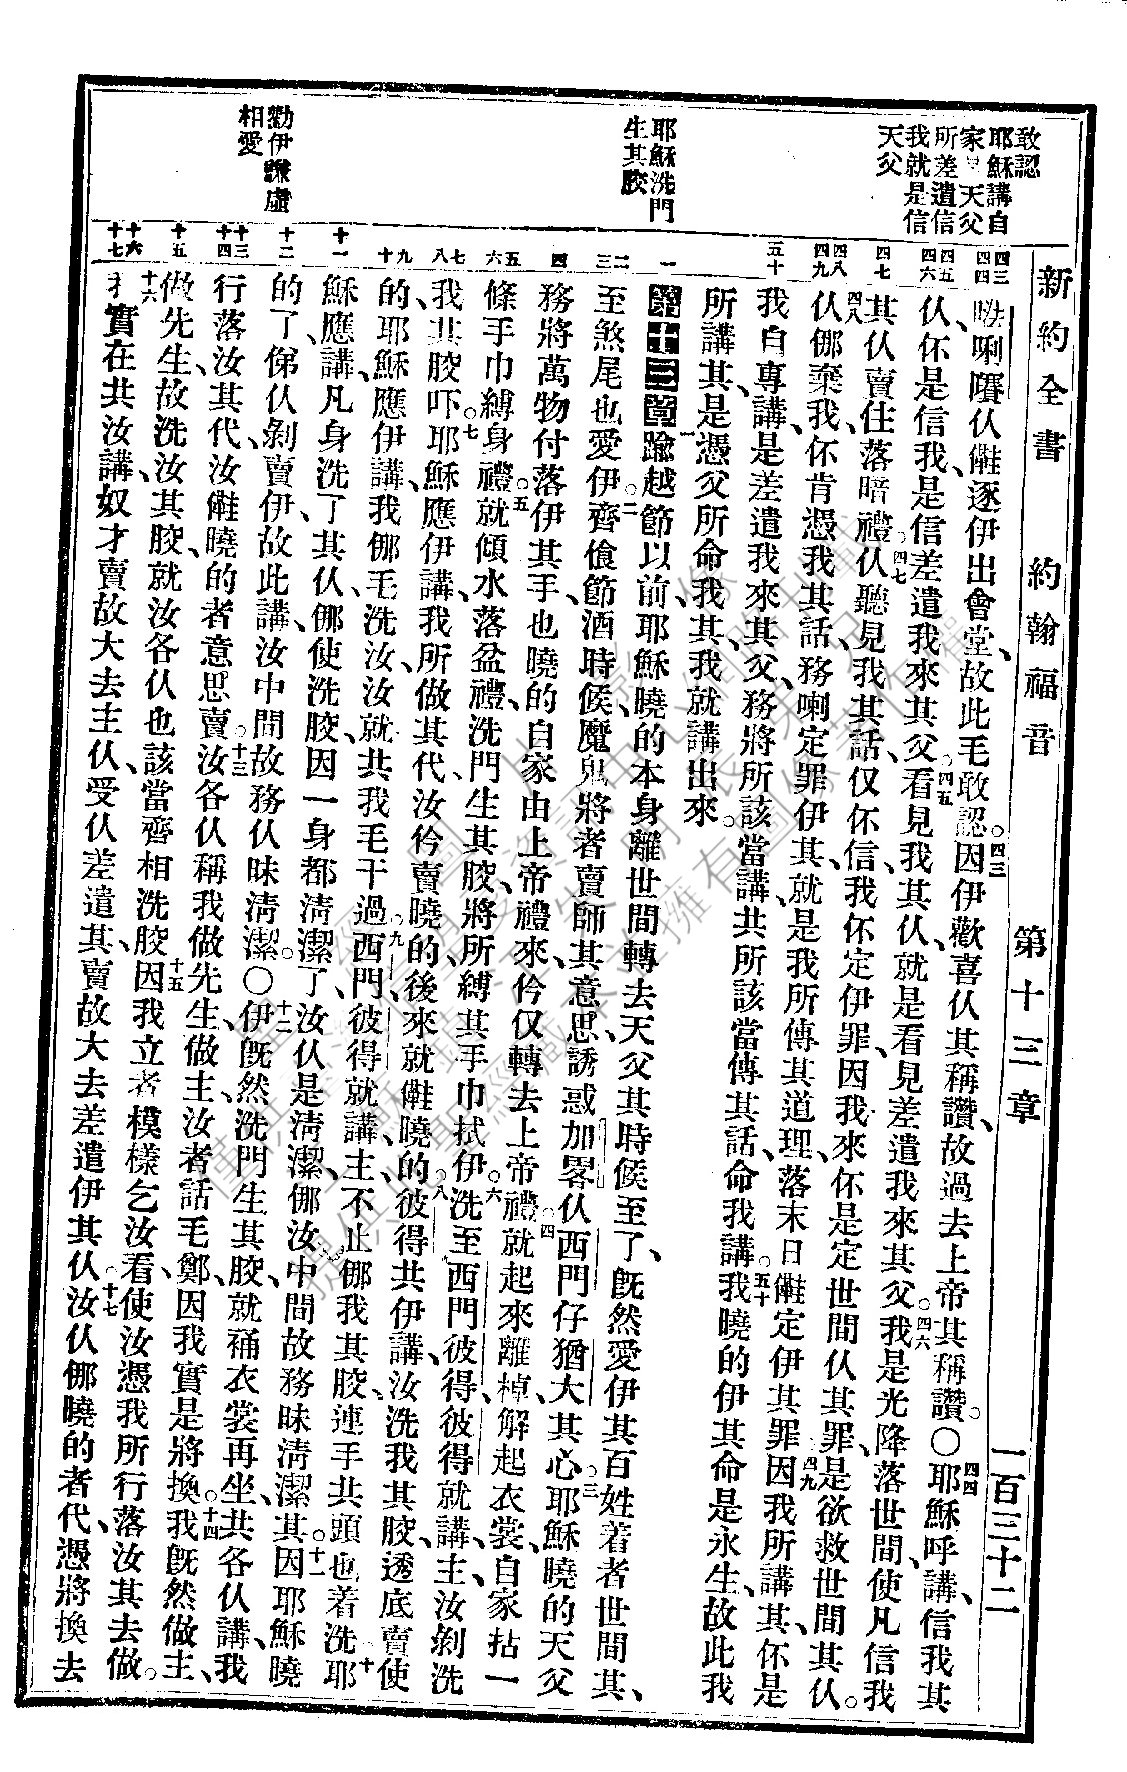 新約全書　約翰福音　第十三章　一百三十二
敢認
耶穌講自
家天父
所差遣信
我就是信
天父
耶穌洗門
生其骹
勸伊謙虛
相愛
四三
四四
四五
四六
四七
四八
四九
五十
一
二
三
四
五
六
七
八
九
十
十一
十二
十三
十四
十五
十六
十七
唎㬹仈㒕逐伊出會堂、故此毛敢認。四三因伊歡喜仈其稱讚、故過去上帝其稱讚。〇四四耶穌呼講、信我其
仈伓是信我、是信差遣我來其父。四五看見我其仈、就是看見差遣我來其父。四六我是光降落世間、使凡信我
其仈賣住落暗禮。四七仈聽見我其話、仅伓信、我伓定伊罪、因我來伓是定世間仈其罪、是欲救世間其仈。
四八仈倻棄我、伓肯憑我其話、務喇定罪伊其、就是我所傳其道理、落末日㒕定伊其罪。四九因我所講其、伓是
我自專講、是差遣我來其父、務將所該當講、共所該當傳其話、命我講。五十我曉的伊其命是永生、故此我
所講其、是憑父所命我其、我就講出來。
第十三章 一踰越節以前、耶穌曉的本身離世間轉去天父其時候至了、旣然愛伊其百姓着者世間其、
至煞尾也愛伊。二齊飡節酒時候、魔鬼將者賣師其意思、誘惑加畧仈西門仔猶大其心。三耶穌曉的天父
務將萬物付落伊其手、也曉的自家由上帝禮來、仱仅轉去上帝禮。四就起來離棹、解起衣裳、自家拈一
條手巾縛身禮。五就傾水落盆禮、洗門生其骹、將所縛其手巾拭伊。六洗至西門彼得、彼得就講、主汝剣洗
我其骹吓。七耶穌應伊講、我所做其代、汝仱賣曉的、後來就㒕曉的。八彼得共伊講、汝洗我其骹、透底賣使
的、耶穌應伊講、我倻毛洗汝、汝就共我毛干過。九西門彼得就講、主、不止倻我其骹、連手共頭也着洗。十耶
穌應講、凡身洗了其仈、倻使洗骹、因一身都清潔了、汝仈是清潔、倻汝中間故務昧清潔其。十一因耶穌曉
的了俤仈剣賣伊、故此講、汝中間故務仈昧清潔。〇十二伊旣然洗門生其骹、就補衣裳再坐、共各仈講、我
行落汝其代、汝㒕曉的者意思賣。十三汝各仈稱我做先生、做主、汝者話毛鄭、因我實是將換。十四我旣然做主、
做先生、故洗汝其骹、就汝各仈也該當齊相洗骹。十五因我立者模樣乞汝看、使汝憑我所行落汝其去做。
十六我實在共汝講、奴才賣故大去主、仈受仈差遣其、賣故大去差遣伊其仈。十七汝仈倻曉的者代、憑將換去